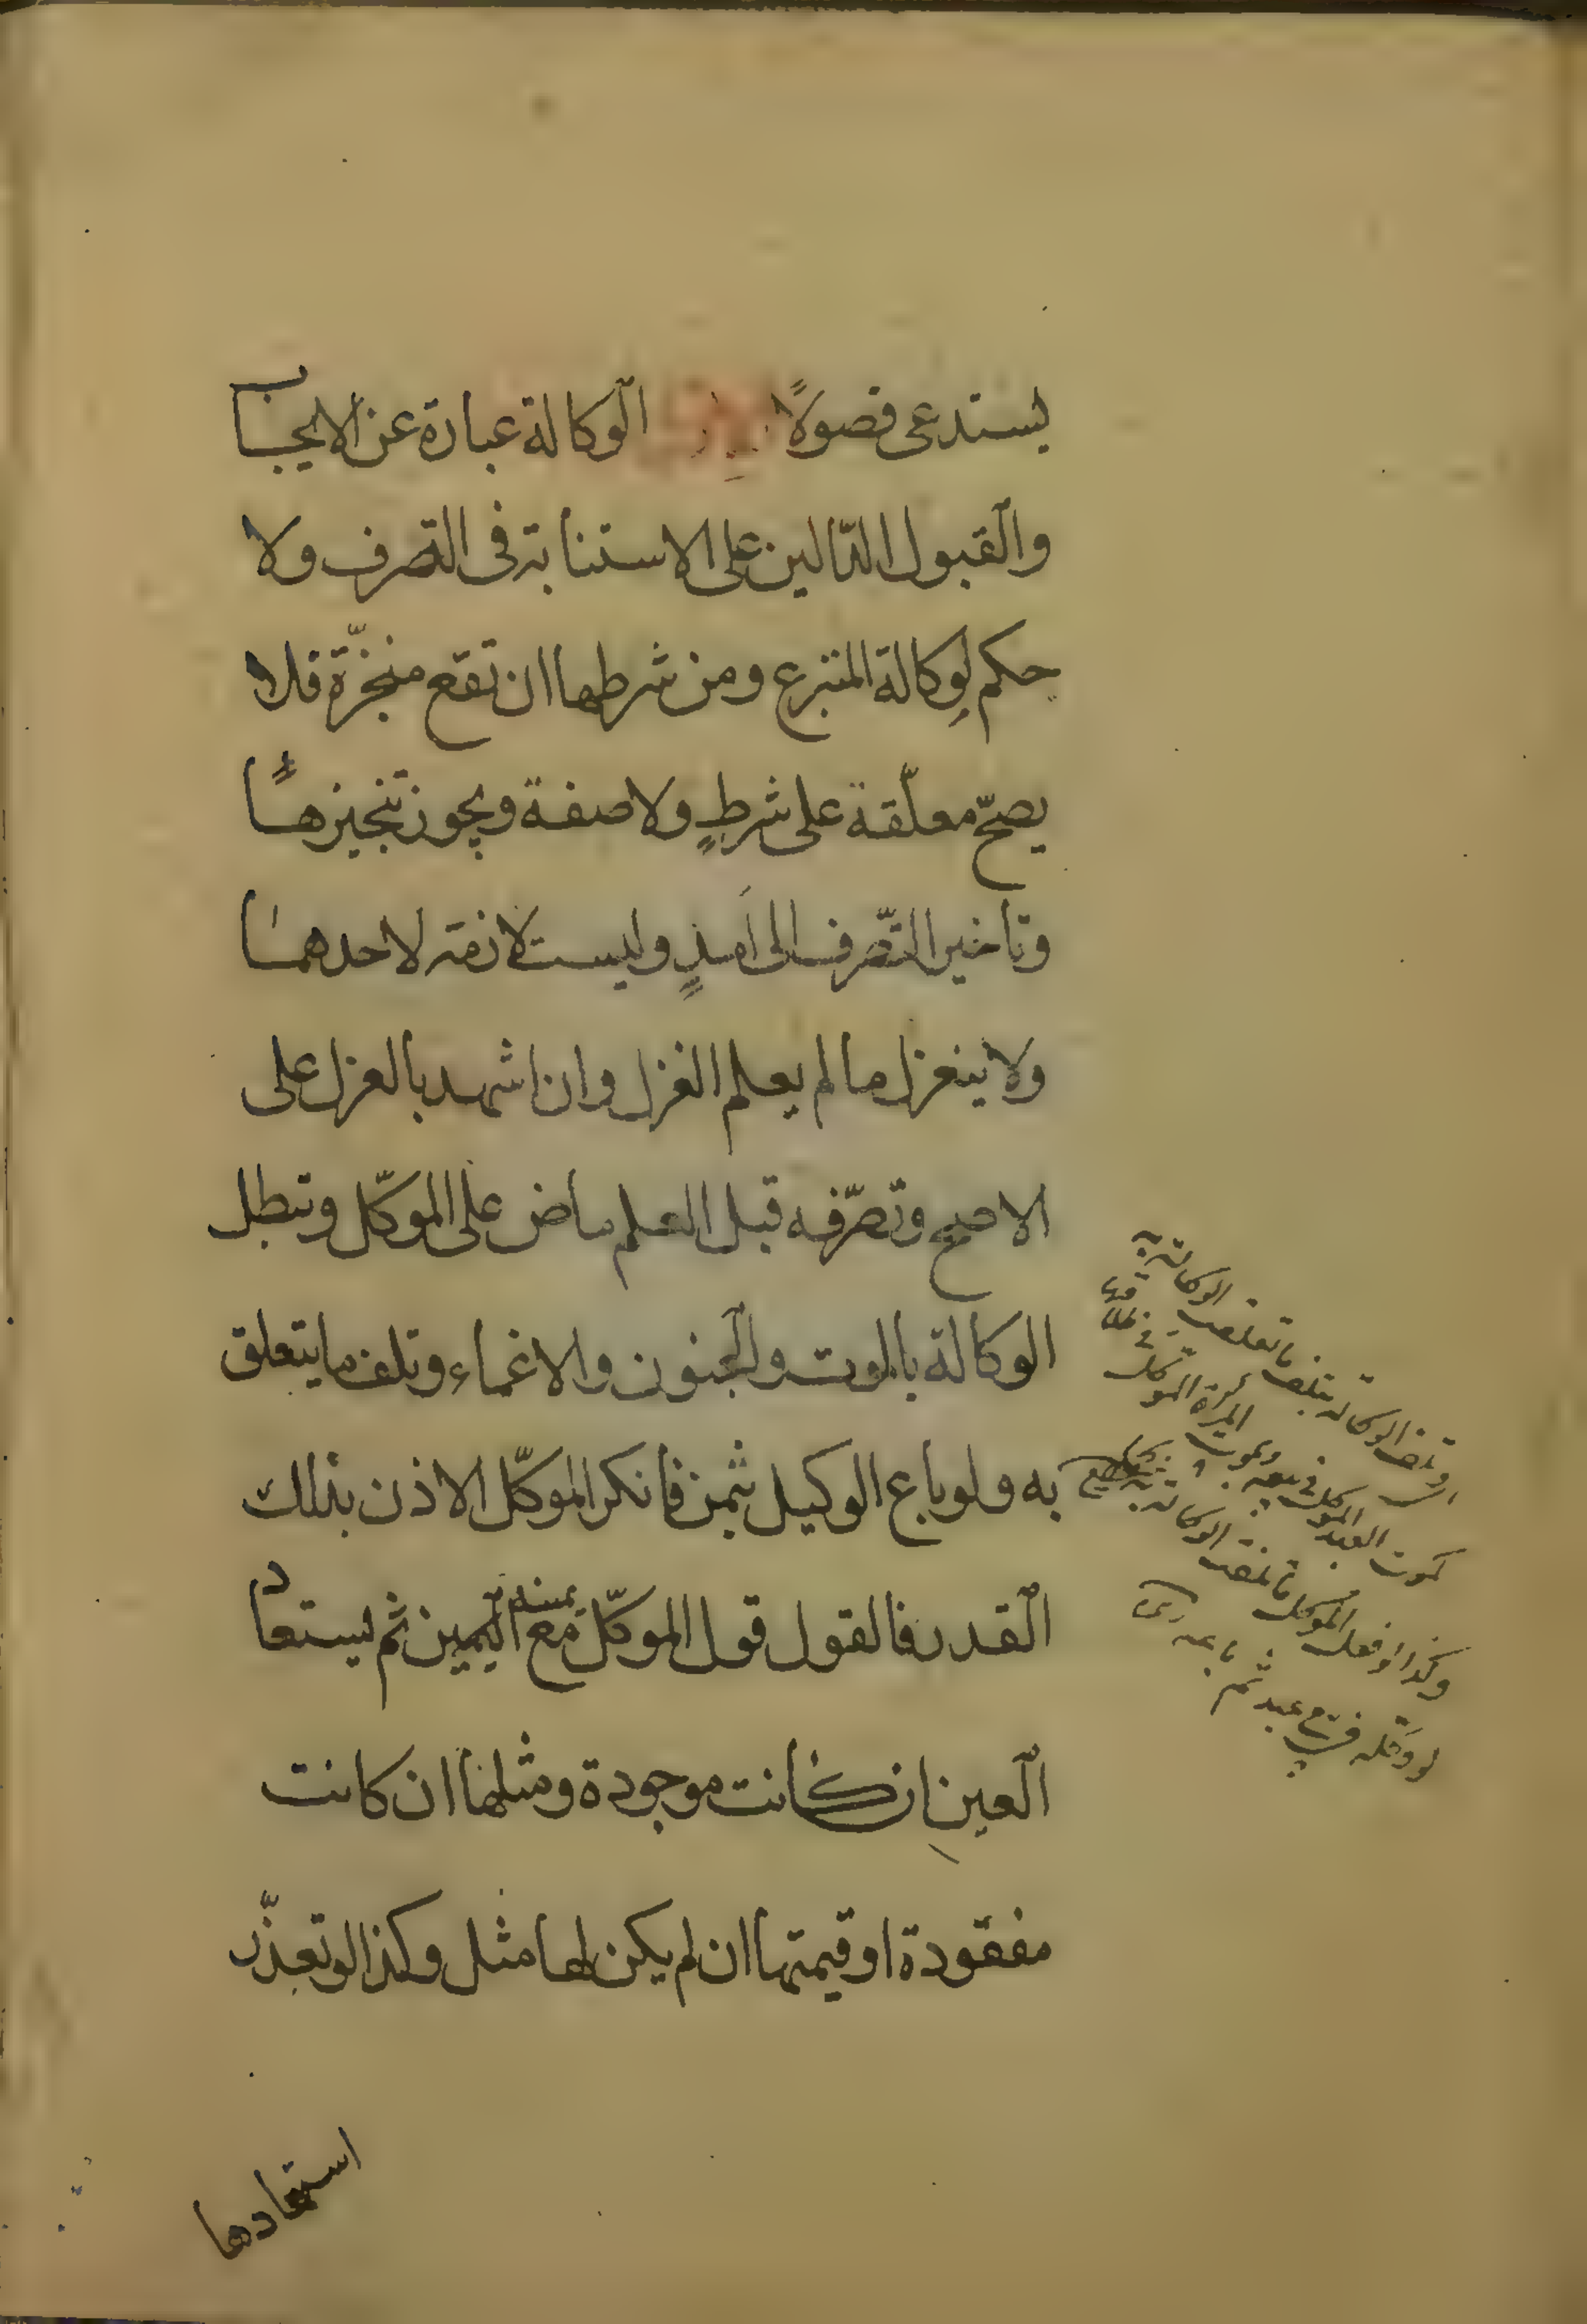 يستدعى فصولًا الوكالة عبارة عن الايجاب
والقبول الدّالين على الاستنابة فى التصرف ولا
حكم لوكالة المتبرع ومن شرطها ان تقع منجّزة فلا
يصحّ معلّقة على شرطٍ ولا صفة ويجوز تنجيزها
وتاخير التّصرف الى امدٍ وليست لازمة لاحدهما
ولا ينعزل ما لم يعلم العزل وان اشهد بالعزل على
الاصح وتصرّفه قبل العلم ماض على الموكّل وتبطل
الوكالة بالموت والجنون والاغماء وتلف ما يتعلق
به ولو باع الوكيل بثمن فانكر الموكّل الاذن بذلك
القدر فالقول قول الموكّل مع يمينه اليمين ثم يستعاد
العين ان كانت موجودة ومثلها ان كانت
مفقودة او قيمتها ان لم يكن لها مثل وكذا لو تعذّر
استعادها
الوكالة بتلف ما تعلقت الوكالة به
كموت العبد الموكل فى بيعه وبموت المرأة الموكل فى طلاقها
وكذا لو فعل الموكل ما تعلقت الوكالة به
لو وكله فى بيع عبد ثم باعه